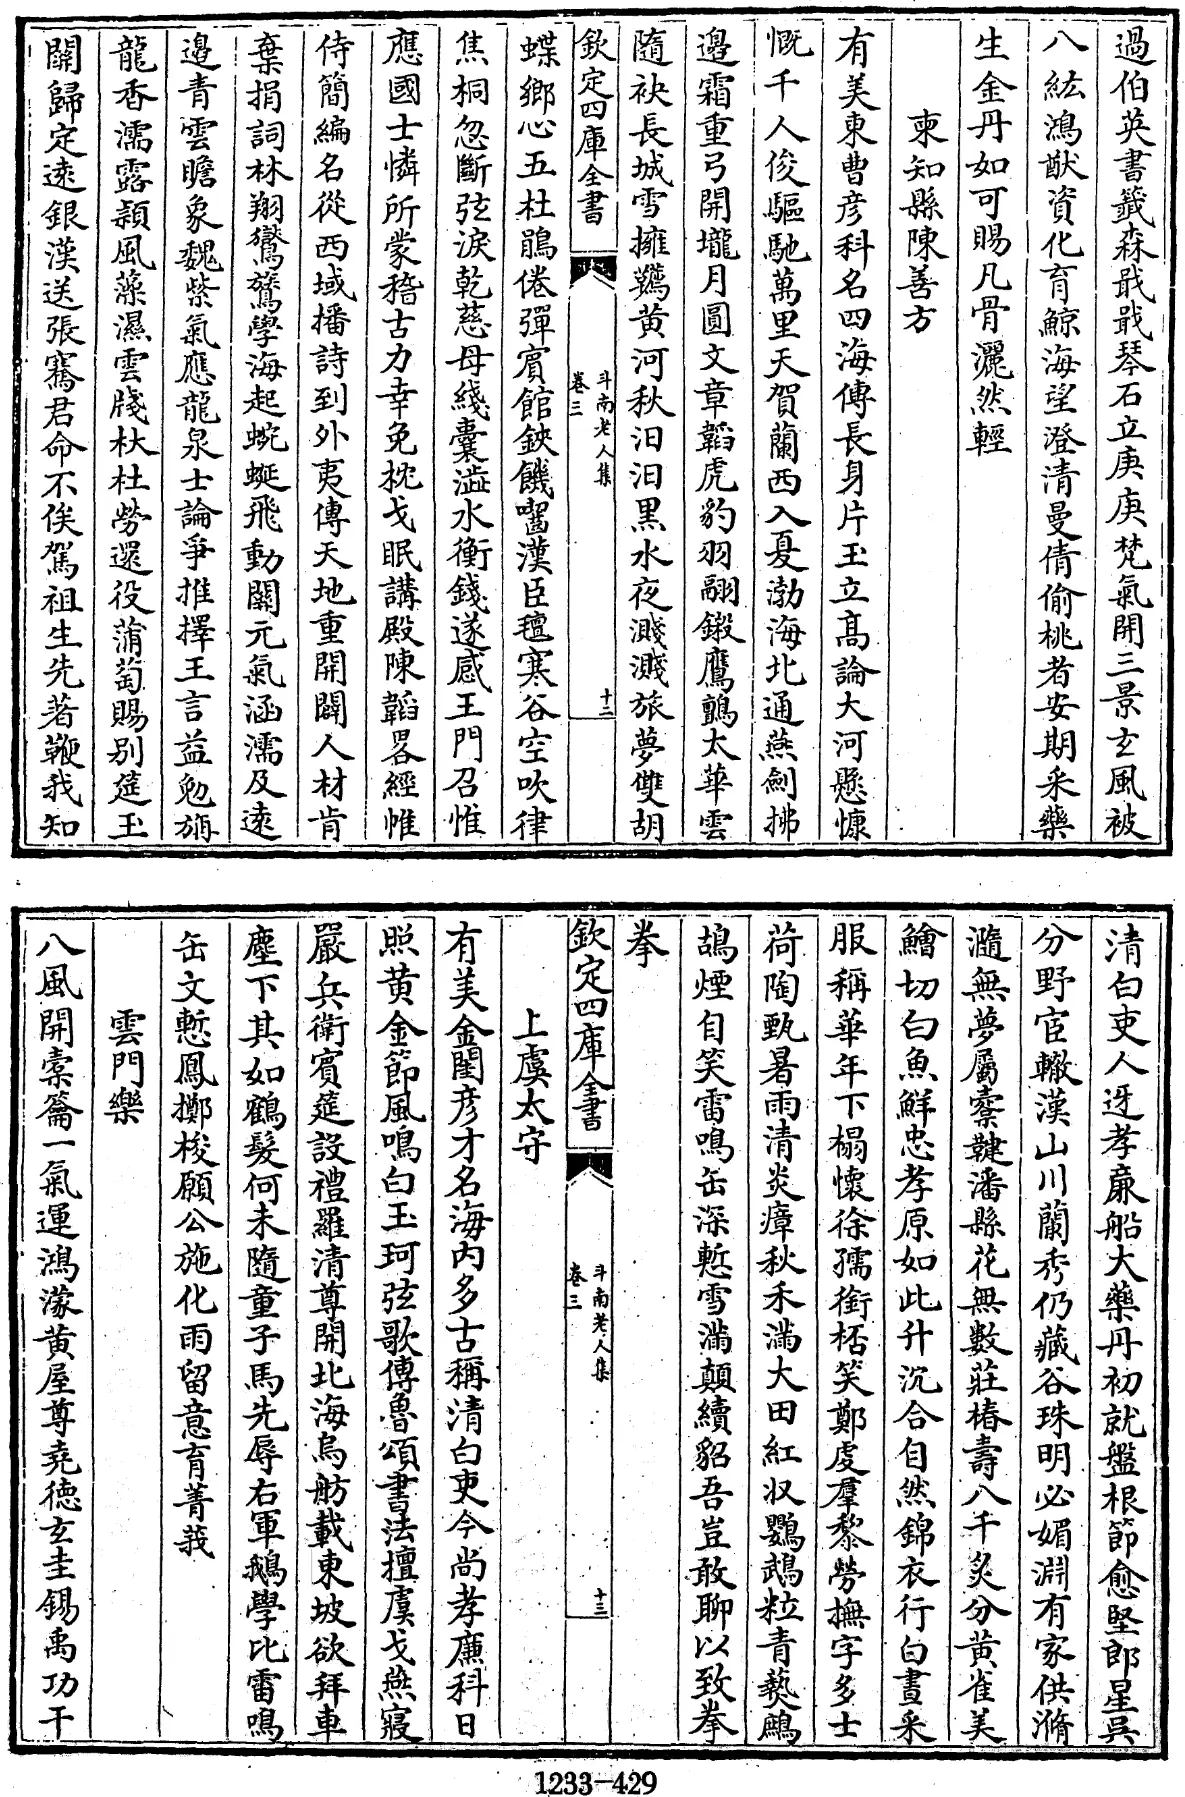 過伯英書籤森戢戢琴石立庚庚梵氣開三景玄風被
八紘鴻猷資化育鯨海望澄清曼倩偷桃者安期采藥
生金丹如可賜凡骨灑然輕
柬知縣陳善方
有美東曹彦科名四海傳長身片玉立髙論大河懸慷
慨千人俊驅馳萬里天賀蘭西入夏渤海北通燕劍拂
邉霜重弓開壠月圓文章韜虎豹羽翮鍛鷹鸇太華雲
隨袂長城雪擁韉黄河秋汩汩黒水夜濺濺旅夢雙胡
欽定四庫全書
斗南老人集
卷三
十二
蝶鄉心五杜鵑倦彈賓館鋏饑囓漢臣氊寒谷空吹律
焦桐忽斷弦淚乾慈母綫囊澁水衡錢遂感王門召惟
應國士憐所蒙稽古力幸免枕戈眠講殿陳韜畧經帷
侍簡編名從西域播詩到外夷傳天地重開闢人材肯
棄捐詞林翔鸑鷟學海起蜿蜒飛動關元氣涵濡及逺
邉青雲瞻象魏紫氣應龍泉士論爭推擇王言益勉旃
龍香濡露頴風藻濕雲牋杕杜勞還役蒲萄賜别筵玉
關歸定逺銀漢送張騫君命不俟駕祖生先著鞭我知
清白吏人迓孝亷船大藥丹初就盤根節愈堅郎星吳
分野宦轍漢山川蘭秀仍藏谷珠明必媚淵有家供滫
瀡無夢屬櫜鞬潘縣花無數莊椿壽八千炙分黄雀美
鱠切白魚鮮忠孝原如此升沉合自然錦衣行白晝采
服稱華年下榻懷徐孺銜桮笑鄭虔羣黎勞撫字多士
荷陶甄暑雨清炎瘴秋禾滿大田紅收鸚鵡粒青爇鷓
鴣煙自笑雷鳴缶深慙雪滿顛續貂吾豈敢聊以致拳
拳
欽定四庫全書
斗南老人集
卷三
十三
上虞太守
有美金閨彦才名海内多古稱清白吏今尚孝㢘科日
照黄金節風鳴白玉珂弦歌傳魯頌書法擅虞戈燕寢
嚴兵衛賓筵設禮羅清尊開北海烏舫載東坡欲拜車
塵下其如鶴髮何未隨童子馬先辱右軍鵝學比雷鳴
缶文慙鳳擲梭願公施化雨留意育菁莪
雲門樂
八風開橐籥一氣運鴻濛黄屋尊堯德玄圭錫禹功干
1233-429